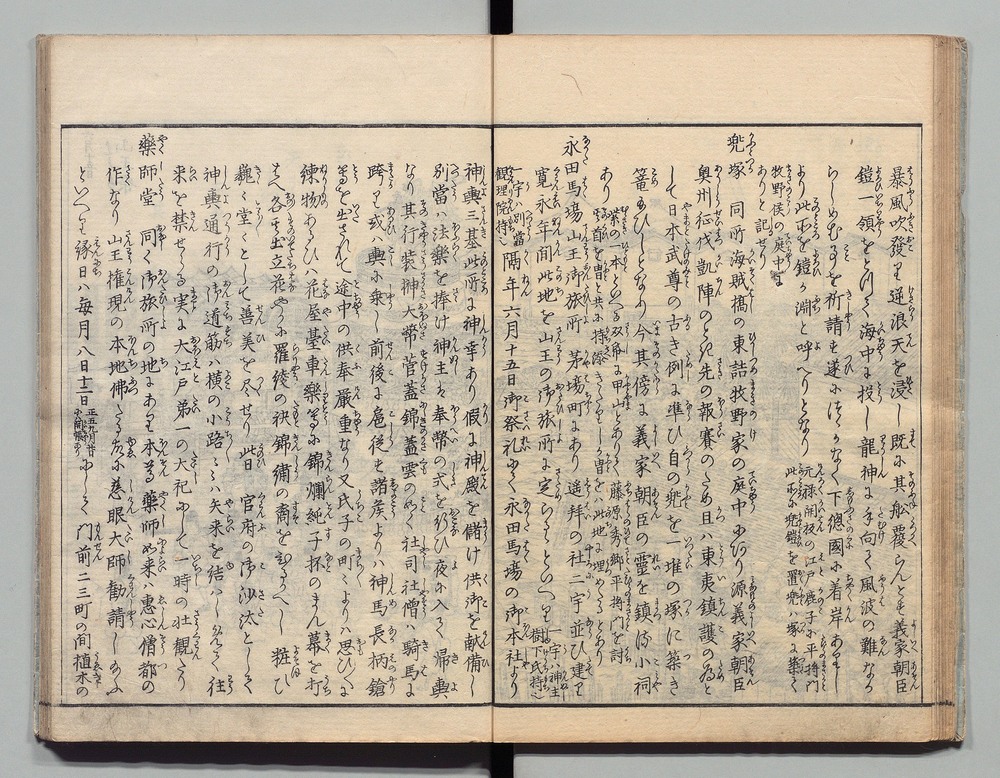 暴風吹發り逆浪天を浸し既に其舩覆らんとす義家朝臣
鎧一領をとりて海中に投し龍神に手向て風波の難なか
らしめむ事を祈請す遂につゝかなく下總國に着岸ありし
より此所を鎧か淵と呼へりとなり
元禄開板の江戸鹿子に平将門
此所に兜鎧を置兜ハ塚に築て
牧野侯の庭中に
ありと記せり
兜塚 同所海賊橋の東詰牧野家の庭中にあり源義家朝臣
奥州征伐凱陣のとき先の報賽のため且ハ東夷鎮護の為と
して日本武尊の古き例に準ひ自の兜を一堆の塚に築き
籠給ひしとなり今其傍に義家朝臣の霊を鎮る小祠
あり
藤原秀郷平将門を討
其首を冑と共に持添
永田馬場山王御旅所 茅場町にあり遥拝の社二宇並ひ建り
寛永年間此地を山王の御旅所に定らるといへり
一宇ハ神主
樹下氏持
一宇ハ別當
観理院持
隔年六月十五日御祭礼にて永田馬場の御本社より
神輿三基此所に神幸あり假に神殿を儲け供御を獻備し
別當ハ法樂を捧け神主ハ奉幣の式を行ひ夜に入て帰輿
なり其行装榊大幣菅蓋錦蓋雲のめく社司社僧ハ騎馬に
跨り或ハ輿に乗し前後に扈従す諸侯よりハ神馬長柄鎗
等を出されて途中の供奉厳重なり又氏子の町々よりハ思ひ〳〵に
練物あるひハ花屋䑓車樂等に錦爛純子抔のまん幕を打
はへ各其出立花やかに羅綾の袂錦繡の裔をひるかへし 粧ひ
巍々堂々として善美を尽せり此日 官府の御沙汰として
神輿通行の御道筋ハ横の小路々々ハ矢来を結ハしめられて往
来を禁せらる実に大江戸第一の大祀にして一時の壮觀たり
藥師堂 同く御旅所の地にあり本尊藥師如来ハ恵心僧都の
作なり 山王権現の本地佛たる故に慈眼大師勧請し給ふ
といへり縁日ハ毎月八日十二日
正五九月廿
日開帳あり
にして 門前二三町の間植木の